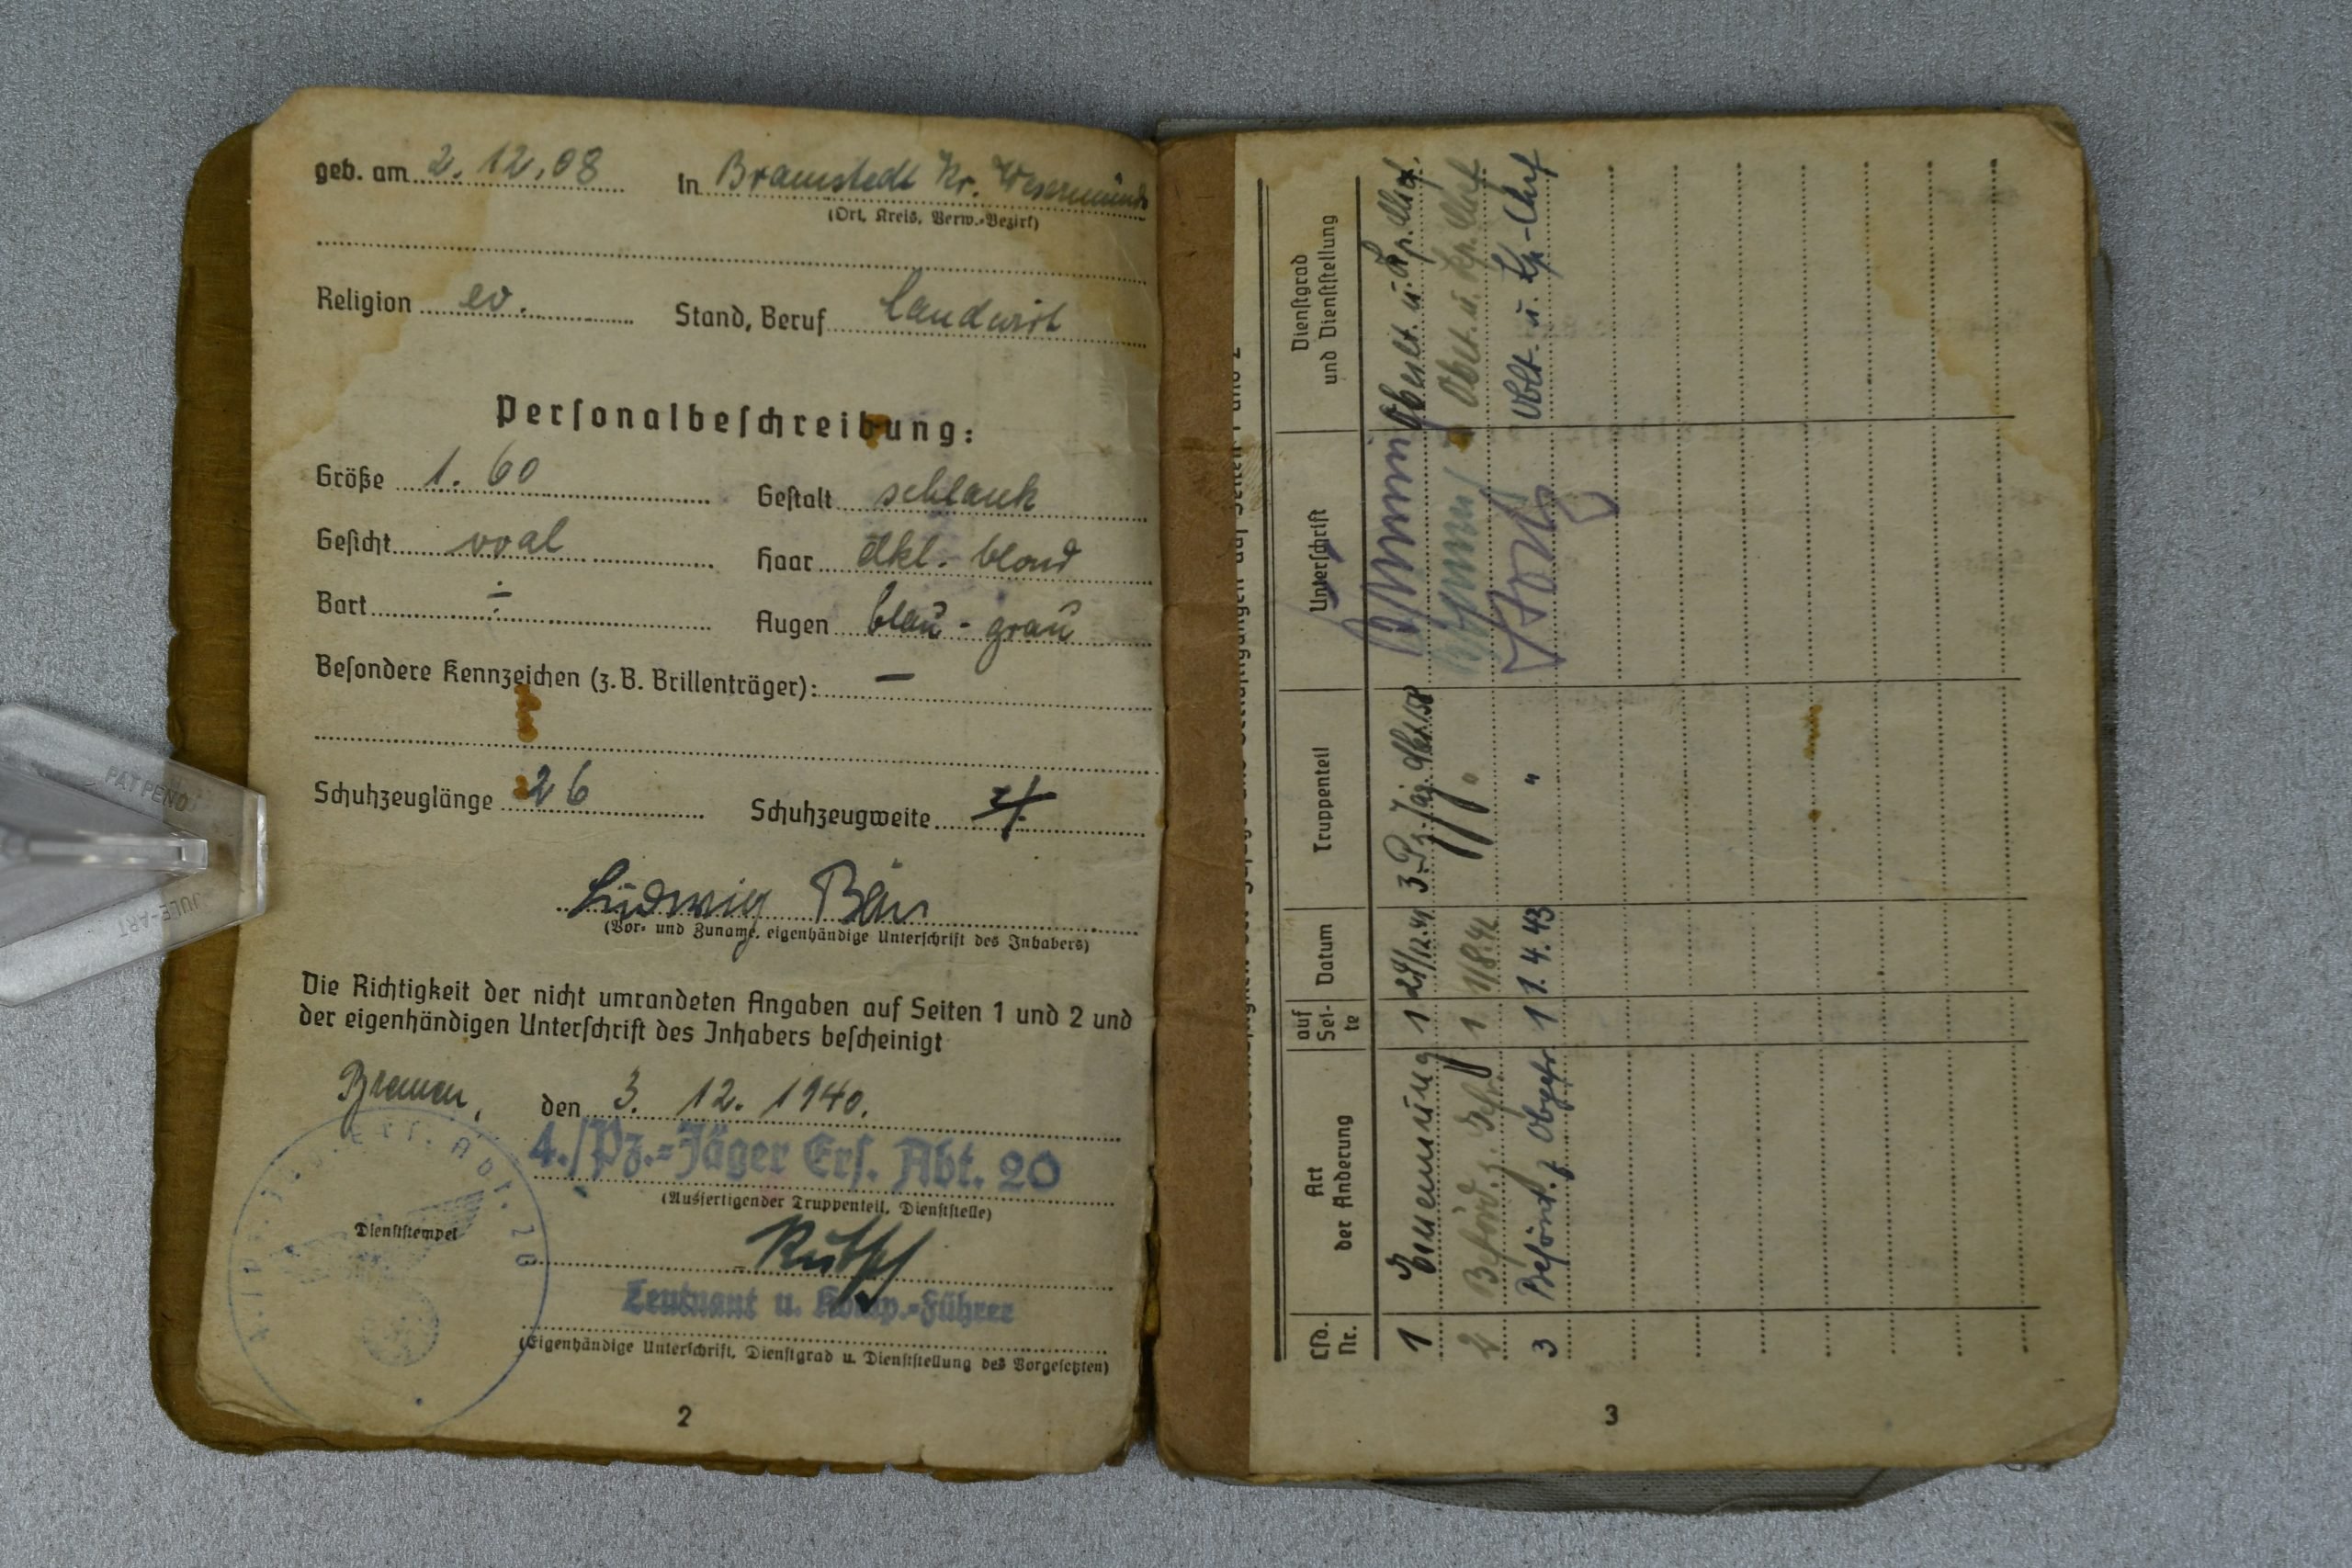 geb. am 2. 12. 08 in Bramstedt Kr. Wesermünde
(Ort, Kreis, Verw.-Bezirk)
Religion ev. Stand, Beruf Landwirt
Personalbeschreibung:
Größe 1.60 Gestalt schlank
Gesicht oval Haar dkl.-blond
Bart ÷ Augen blau-grau
Besondere Kennzeichen (z.B. Brillenträger): —
Schuhzeuglänge 26 Schuhzeugweite
Ludwig
(Vor- und Zuname, eigenhändige Unterschrift des Inhabers)
Die Richtigkeit der nicht umrandeten Angaben auf Seiten 1 und 2 und
der eigenhändigen Unterschrift des Inhabers bescheinigt
Bremen, den 3. 12. 1940.
4./Pz.-Jäger Ers. Abt. 20
(Ausfertigender Truppenteil, Dienststelle)
Dienststempel
Leutnant u. Komp.-Führer
(Eigenhändige Unterschrift, Dienstgrad u. Dienststellung des Vorgesetzten)
2
Lfd. Nr. Art der Änderung auf Sei-te Datum Truppenteil Unterschrift Dienstgrad und Dienststellung
1 Ernennung 1 3. Pz. Jäg. Oberlt. u. Kp. Chef.
2 Beförd. z. Gfr. 1 " Oblt. u. Kp. Chef
3 Beförd. z. Obgefr. 1 1. 4. 43 " Oblt. u. Kp-Chef
3
PAT PEND
JULE-ART